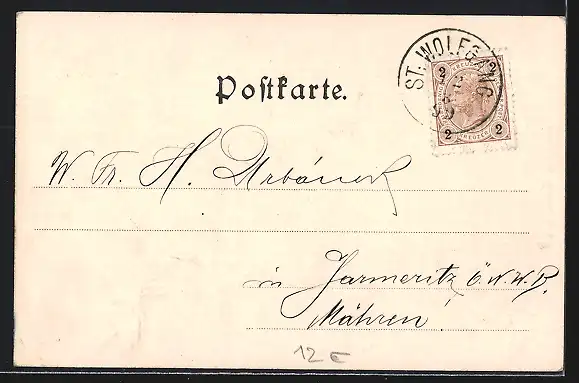 ST. WOLFGANG
2 2
KREUZER
2 2
KREUZER
Postkarte.
W. Fr. H. Urbánek
in Jarmeritz ö. N. W. B.
Mähren!
12 €